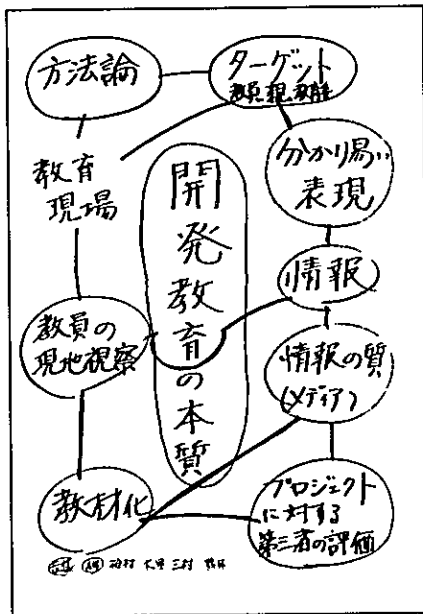 方法論
ターゲット
教員、親、教育
教育
現場
分かり易い
表現
開発教育の本質
情報
教員の
現地視察
情報の質
(メディア)
教材化
プロジェクト
に対する
第三者の評価
三村